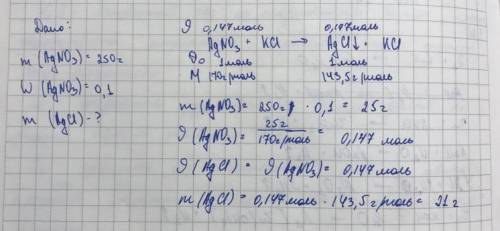 Дано:
m (AgNO₃) = 250г
W (AgNO₃) = 0,1
m (AgCl) - ?
ϑ 0,147моль 0,147моль
AgNO₃ + KCl → AgCl↓ + KCl
ϑ₀ 1моль 1моль
M 170г/моль 143,5г/моль
m (AgNO₃) = 250г · 0,1 = 25г
ϑ (AgNO₃) = 25г / 170г/моль = 0,147 моль
ϑ (AgCl) = ϑ (AgNO₃) = 0,147 моль
m (AgCl) = 0,147моль · 143,5г/моль = 21г